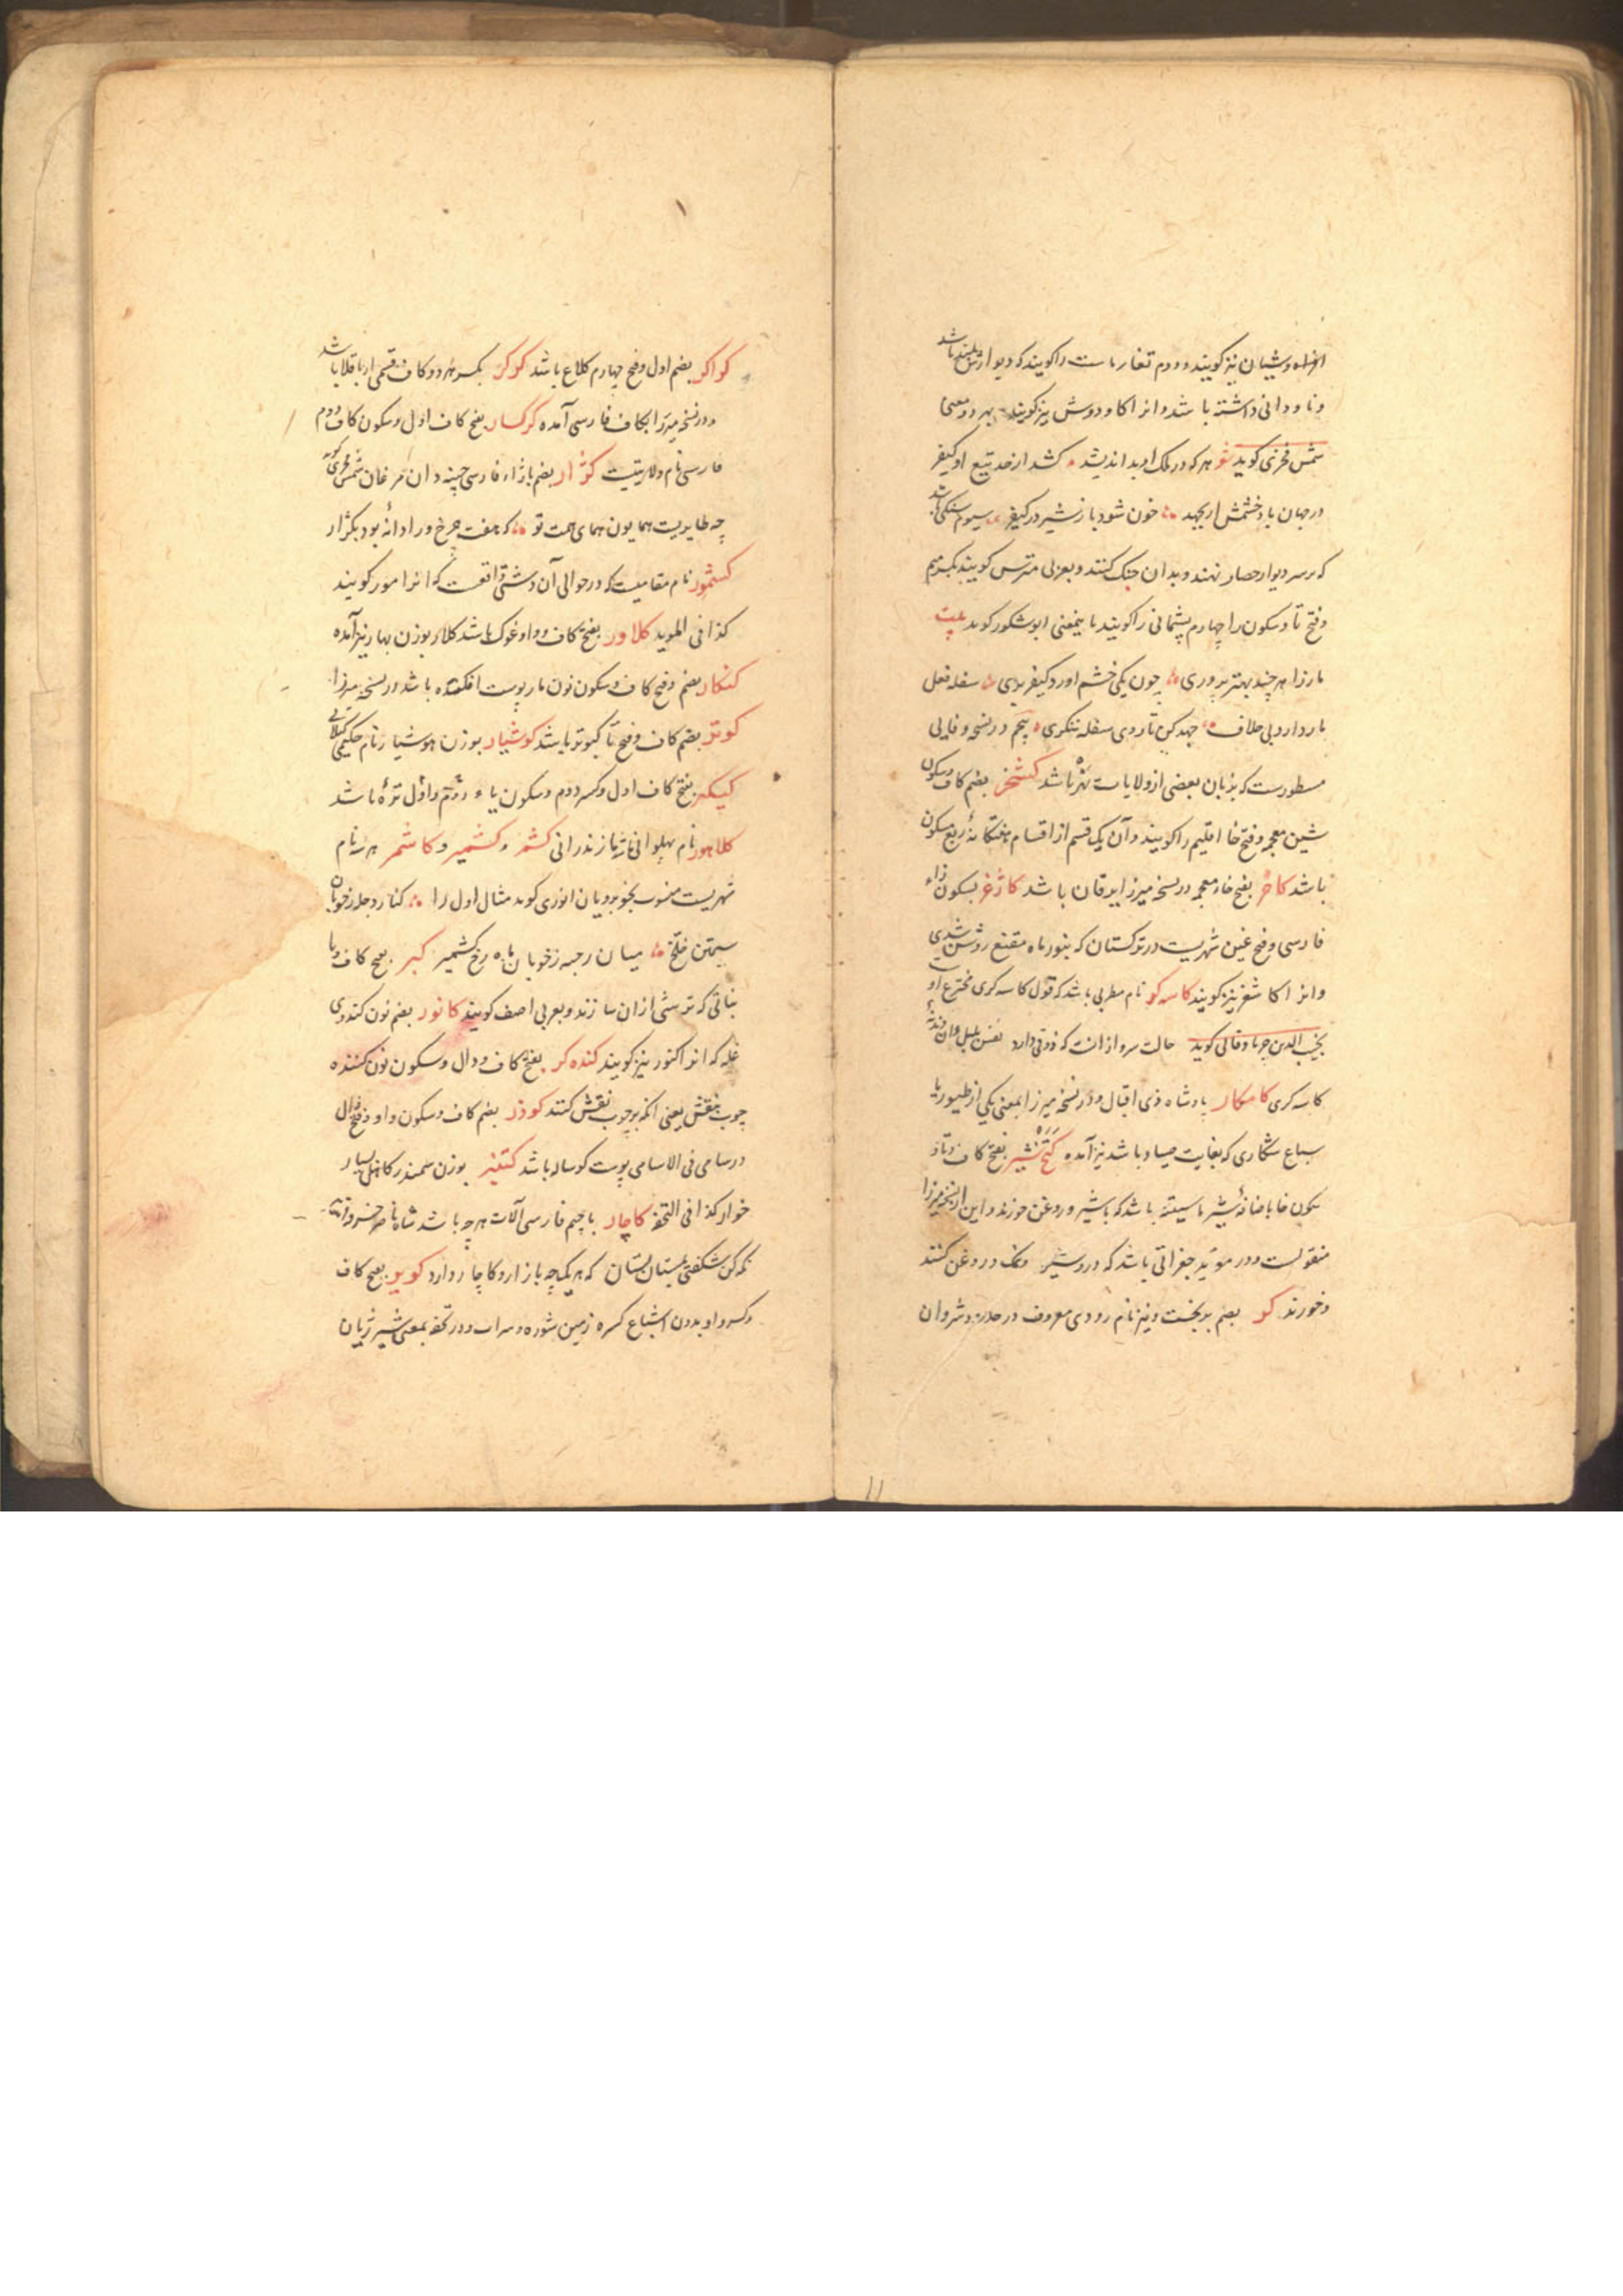 افراه و شیان نیز کویند و دوم تغار ماست را کویند که دیوارش بلند باشد
و ناودانی داشته باشد و انرا کاودوش نیز کویند بهر دو معنی
شمس فخری کوید شعر هر که در ملک او بد اندیشد کشد از حد تیغ او کیفر
در جهان باد خشمش ار بجهد خون شود باز شیر در کیفر سیوم سنکی باشد
که بر سر دیوار حصار نهند و بدان جنک کنند و بعربی مترس کویند بکسر میم
و فتح تا و سکون را چهارم پشیمانی را کویند باینمعنی ابوشکور کوید بیت
مار را هر چند بهتر پروری چون یکی خشم اورد کیفر بری سفله فعل
مار دارد بی خلاف جهد کن تا روی سفله ننکری پنجم در نسخه وفایی
مسطورست که بزبان بعضی از ولایات نهر باشد کشخر بضم کاف و سکون
شین معجمه و فتح خا اقلیم را کویند و آن یک قسم از اقسام هفتکانهٔ ربع مسکون
باشد کاخر بفتح خاء معجمه در نسخه میرزا یرقان باشد کاژغر بسکون زاء
فارسی و فتح غین شهریست در ترکستان که بنور ماه مقنع روشن شدی
و انرا کاشغر نیز کویند کاسه کر نام مطربی باشد که قول کاسه کری مخترع اوست
نجیب الدین جرباد قانی کوید حالت سرو از انست که ذوقی دارد نفس بلبل وان
کاسه کری کامکار پادشاه ذی اقبال و در نسخه میرزا بمعنی یکی از طیور یا
سباع شکاری که بغایت صیاد باشد نیز آمده کتخ شیر بفتح کاف و تا و
سکون خا با ضافهٔ شیر ماستینه باشد که با شیر و روغن خورند و این از نسخه میرزا
منقولست و در موید جغراتی باشد که درو شیر و نمک و روغن کنند
و خورند کر بضم بدبخت و نیز نام رودی معروف در حدود شروان
کواکر بضم اول و فتح چهارم کلاغ باشد کرکر بکسر هر دو کاف قسمی از باقلا باشد
و در نسخه میرزا بکاف فارسی آمده کرکسار بفتح کاف اول و سکون کاف دوم
فارسی نام ولایتیست کژار بضم با زاء فارسی چینه دان مرغان شمس فخری کوید
چه طایریست همایون همای همت تو که هفت چرخ ورا دانه بود بکژار
کشمور نام مقامیست که در حوالی آن دشتی واقعست که انرا مور کویند
کذا فی الموید کلاور بفتح کاف و واو غوک باشد کلار بوزن بهار نیز آمده
کنکار بضم و فتح کاف و سکون نون مار پوست افکنده باشد در نسخه میرزا
کوتر بضم کاف و فتح تا کبوتر باشد کوشیار بوزن هوشیار نام حکیمی کیلانی
کیکر بفتح کاف اول و کسر دوم و سکون یاء دوم و اول ترهٔ باشد
کلاهور نام پهلوانی مازندرانی کشمر و کشمیر و کاشمر هر سه نام
شهریست منسوب بخوبرویان انوری کوید مثال اول را کنار دجله ز خوبان
سیمتن خلخ میان رحبه ز خوبان ماه رخ کشمیر کبر بفتح کاف و با
نباتی که ترشی ازان سازند و بعربی اصف کویند کانور بضم نون کندوی
غله که انرا کنور نیز کویند کنده کر بفتح کاف و دال و سکون نون کننده
چوب بنقش یعنی انکه بر چوب نقش کنند کوذر بضم کاف و سکون واو و فتح ذال
در سامی فی الاسامی پوست کوساله باشد کتنبر بوزن سمندر کاهل بسیار
خوار کذا فی التحفه کاچار با چیم فارسی آلات هر چه باشد شاه ناصر خسرو
نکه کن شکفتی بمستان بستان که هر یک چه بازار و کاچار دارد کویر بفتح کاف
و کسر واو بدون اشباع کسره زمین شوره و سراب و در تحفه بمعنی شیر ژیان